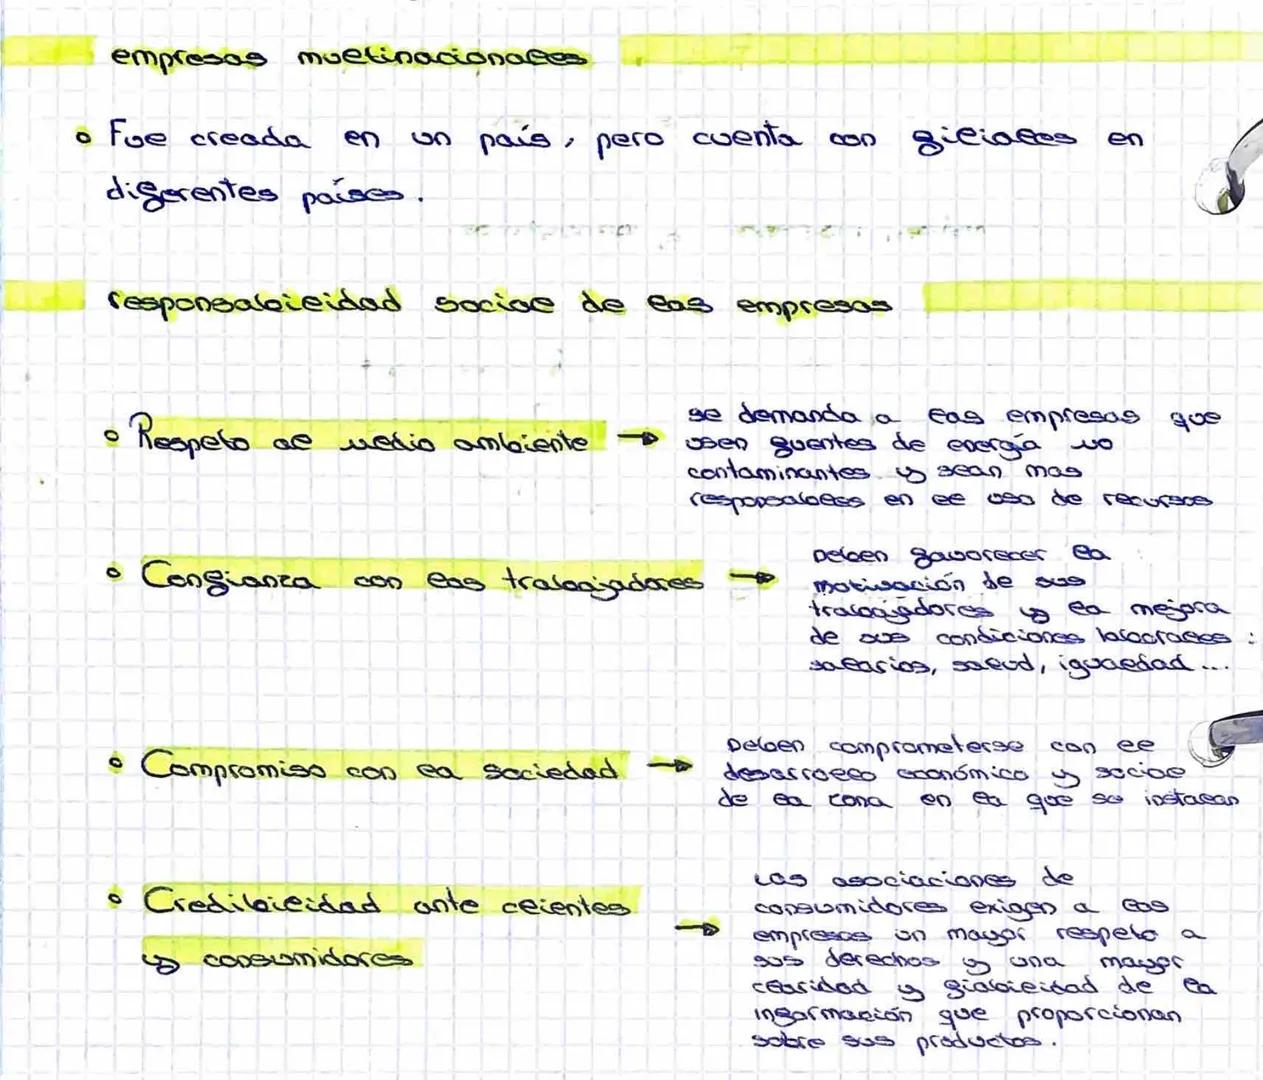 empresas multinacionales
Fue creada en un país, pero cuenta con filiales en
diferentes países.
responsabilidad social de las empresas
Respeto al medio ambiente →
se demanda a las empresas que
usen fuentes de energía no
contaminantes y sean mas
responsables en el uso de recursos
Confianza con los trabajadores →
Deben favorecer la
motivación de sus
trabajadores y la mejora
de sus condiciones laborales :
salarios, salud, igualdad ...
Compromiso con la sociedad →
Deben comprometerse con el
desarrollo económico y social
de la zona en la que se instalan
Credibilidad ante clientes
y consumidores →
Las asociaciones de
consumidores exigen a las
empresas un mayor respeto a
sus derechos y una mayor
claridad y fiabilidad de la
información que proporcionan
sobre sus productos.